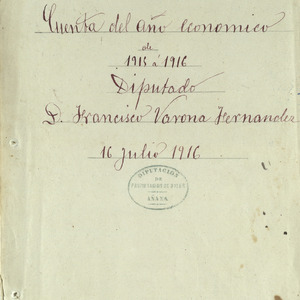 Cuenta del año economico
de
1915 á 1916
Diputado
D. Francisco Varona Fernandez
16 Julio 1916
DIPUTACIÓN
DE
AÑANA